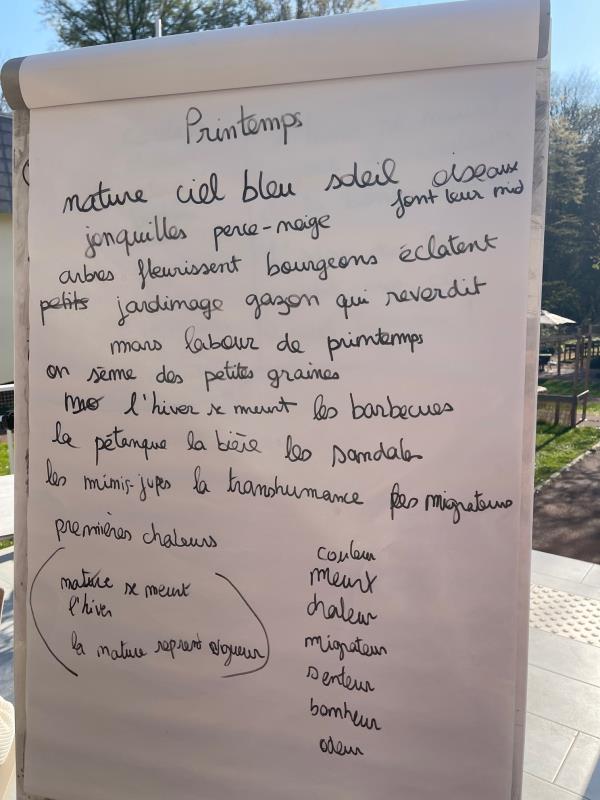 Printemps
nature ciel bleu soleil oiseaux
font leur nid
jonquilles perce-neige
arbres fleurissent bourgeons éclatent
petits jardinage gazon qui reverdit
mars labour de printemps
on sème des petites graines
l'hiver se meurt les barbecues
la pétanque la bière les sandales
les minis-jupes la transhumance les migrateurs
premières chaleurs
nature se meurt
l'hiver
la nature reprend vigueur
couleur
meurt
chaleur
migrateur
senteur
bonheur
odeur